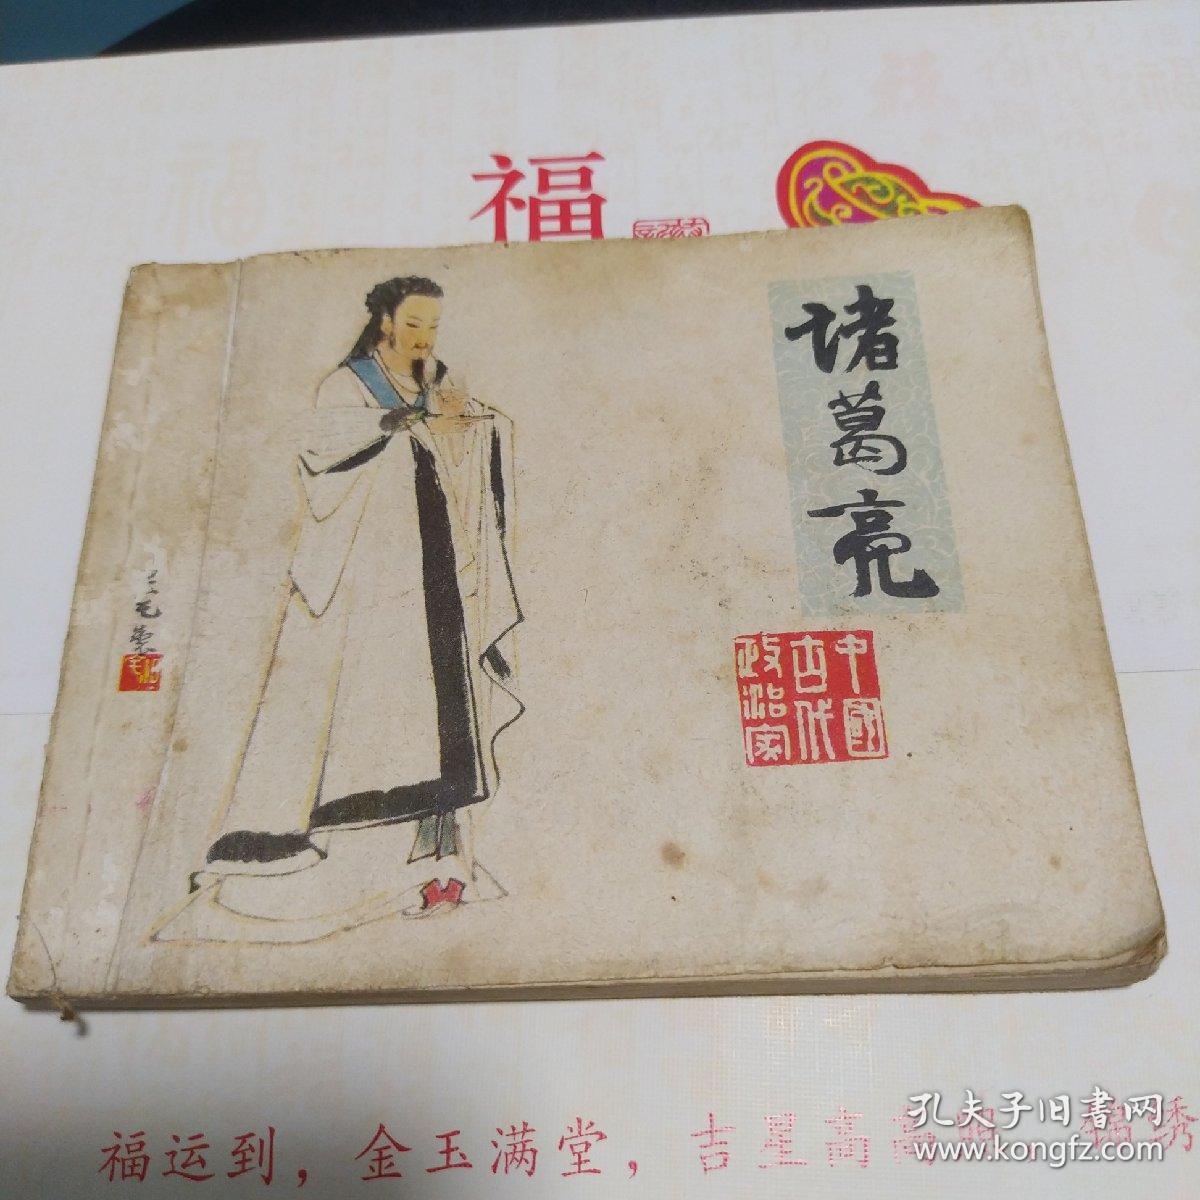 福
诸葛亮
中國
古代
政治家
福运到，金玉满堂，吉星高
孔夫子旧书网
www.kongfz.com